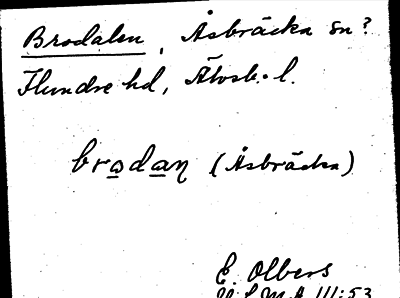 Brodalen, Åsbräcka sn?
Flundre hd, Älvsb. l.
brodan (Åsbräcka)
E. Olbers